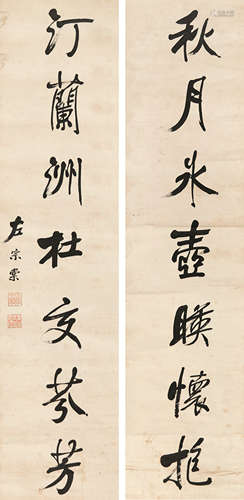 秋月冰壺暎懷抱
汀蘭洲杜交芬芳
左宗棠